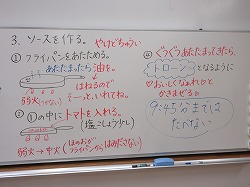 3. ソースを作る。
やけどちゅうい
① フライパンをあたためる。
あたたまったら油を。
はねるので
そーっといれてね。
弱火(うごかない)
② ①の中にトマトを入れる。
(塩こしょう少し)
弱火→中火
(ほのおが
フライパンからはみださない)
④ ぐつぐつあたたまってきたら、
トローン となるように
♡おいしくなぁれ♡と
かきまぜる
9:45分までは
たべない